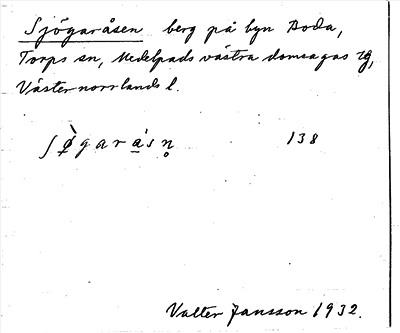 Sjögaråsen berg på byn Boda,
Torps sn, Medelpads västra domsagas tg,
Västernorrlands l.
ʃø̀garásn̥ 138
Valter Jansson 1932.